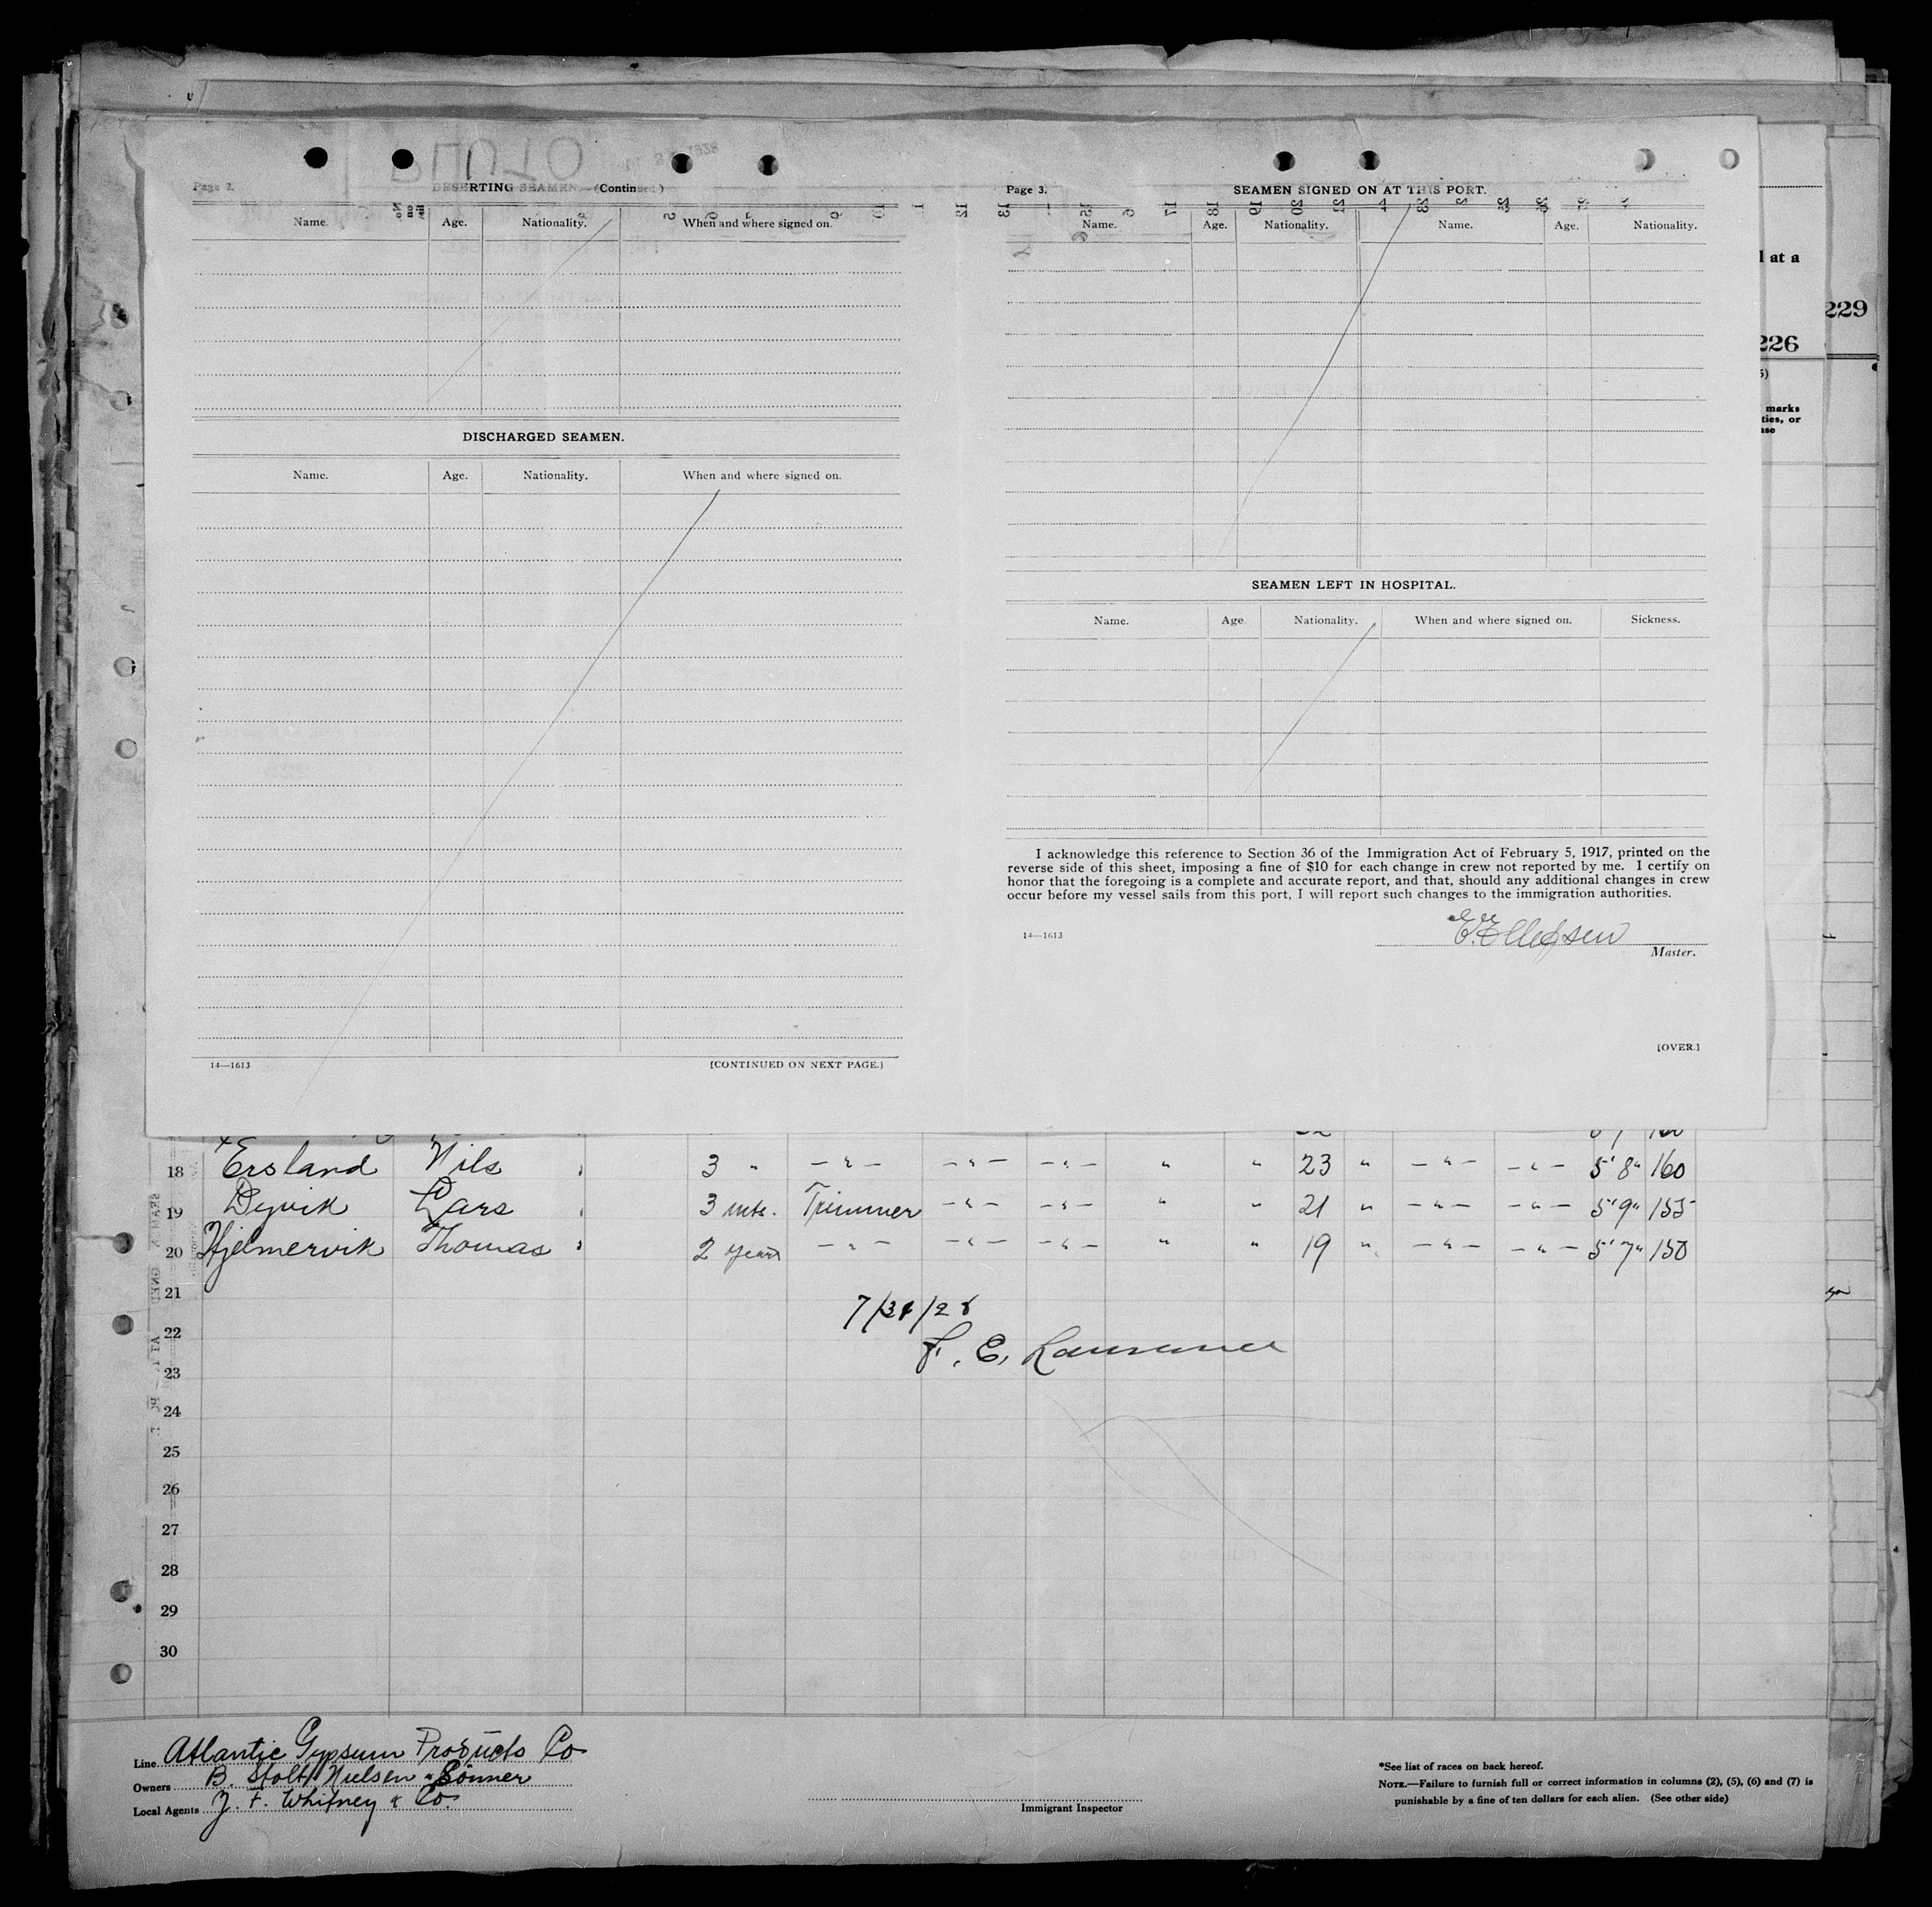 Page 2.
DESERTING SEAMEN.—(Continued)
Name. Age. Nationality. When and where signed on.
DISCHARGED SEAMEN.
Name. Age. Nationality. When and where signed on.
14—1613 [CONTINUED ON NEXT PAGE.]
Page 3.
SEAMEN SIGNED ON AT THIS PORT.
Name. Age. Nationality. Name. Age. Nationality.
SEAMEN LEFT IN HOSPITAL.
Name. Age. Nationality. When and where signed on. Sickness.
I acknowledge this reference to Section 36 of the Immigration Act of February 5, 1917, printed on the
reverse side of this sheet, imposing a fine of $10 for each change in crew not reported by me. I certify on
honor that the foregoing is a complete and accurate report, and that, should any additional changes in crew
occur before my vessel sails from this port, I will report such changes to the immigration authorities.
14—1613
Master.
[OVER.]
at a
229
226
marks
ties, or
18 Ersland Nils 3 " —"— —"— —"— " " 23 " —"— —"— 5'8" 160
19 Dyvik Lars 3 mts. Trimmer —"— —"— " " 21 " —"— —"— 5'9" 155
20 Hjelmervik Thomas 2 years —"— —"— —"— " " 19 " —"— —"— 5'7" 150
21
22
23
24
25
26
27
28
29
30
F. E. Lawrence
Line Atlantic Gypsum Products Co
Owners B. Stolt Nielsen & Sönner
Local Agents J. F. Whitney & Co.
Immigrant Inspector
*See list of races on back hereof.
NOTE.—Failure to furnish full or correct information in columns (2), (5), (6) and (7) is
punishable by a fine of ten dollars for each alien. (See other side)